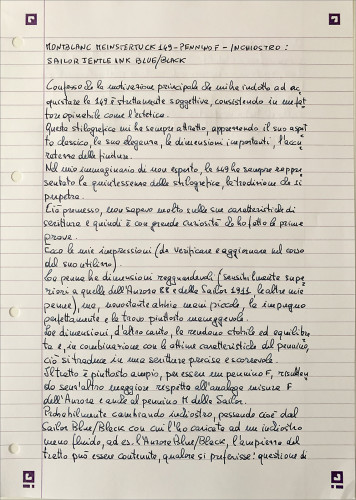 MONTBLANC MEINSTERTUCK 149 - PENNINO F - INCHIOSTRO:
SAILOR JENTLE INK BLUE/BLACK
Confesso che la motivazione principale che mi ha indotto ad ac
quistare la 149 è strettamente soggettiva, consistendo in un fat
tore opinabile come l'estetica.
Questa stilografica mi ha sempre attratto, apprezzando il suo aspet
to classico, la sua eleganza, le dimensioni importanti, l'accu
ratezza delle finiture.
Nel mio immaginario di non esperto, la 149 ha sempre rappre
sentato la quintessenza della stilografica, la tradizione che si
perpetra.
Ciò premesso, non sapevo molto sulle sue caratteristiche di
scrittura e quindi è con grande curiosità che ho fatto le prime
prove.
Ecco le mie impressioni (da verificare e aggiornare nel corso
del suo utilizzo).
La penna ha dimensioni ragguardevoli (sensibilmente supe
riori a quelle dell'Aurora 88 e della Sailor 1911, le altre mie
penne), ma, nonostante abbia mani piccole, la impugno
perfettamente e la trovo piuttosto maneggevole.
Le dimensioni, d'altro canto, la rendono stabile ed equilibra
ta e, in combinazione con le ottime caratteristiche del pennino,
ciò si traduce in una scrittura precisa e scorrevole.
Il tratto è piuttosto ampio, per essere un pennino F, risultan
do senz'altro maggiore rispetto all'analoga misura F
dell'Aurora e anche al pennino M della Sailor.
Probabilmente cambiando inchiostro, passando cioè dal
Sailor Blue/Black con cui l'ho caricata ad un inchiostro
meno fluido, ad es. l'Aurora Blue/Black, l'ampiezza del
tratto può essere contenuta, qualora si preferisse: questione di